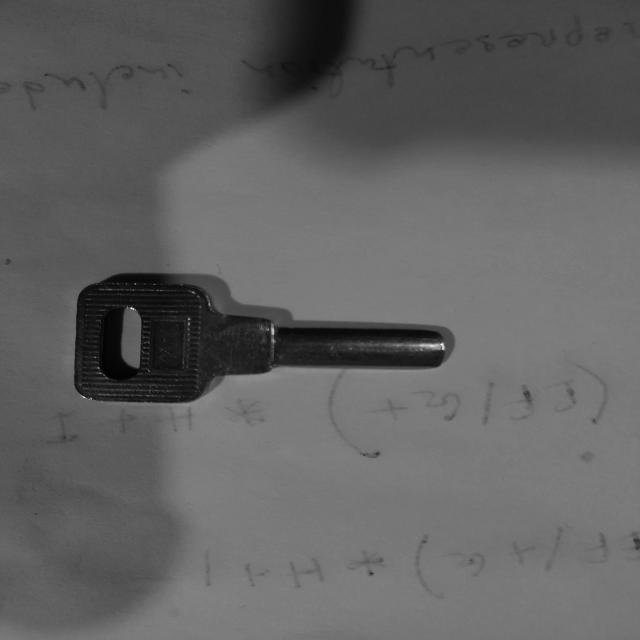 representation include
(EF/G+) * H+I
F/+G) * H+I